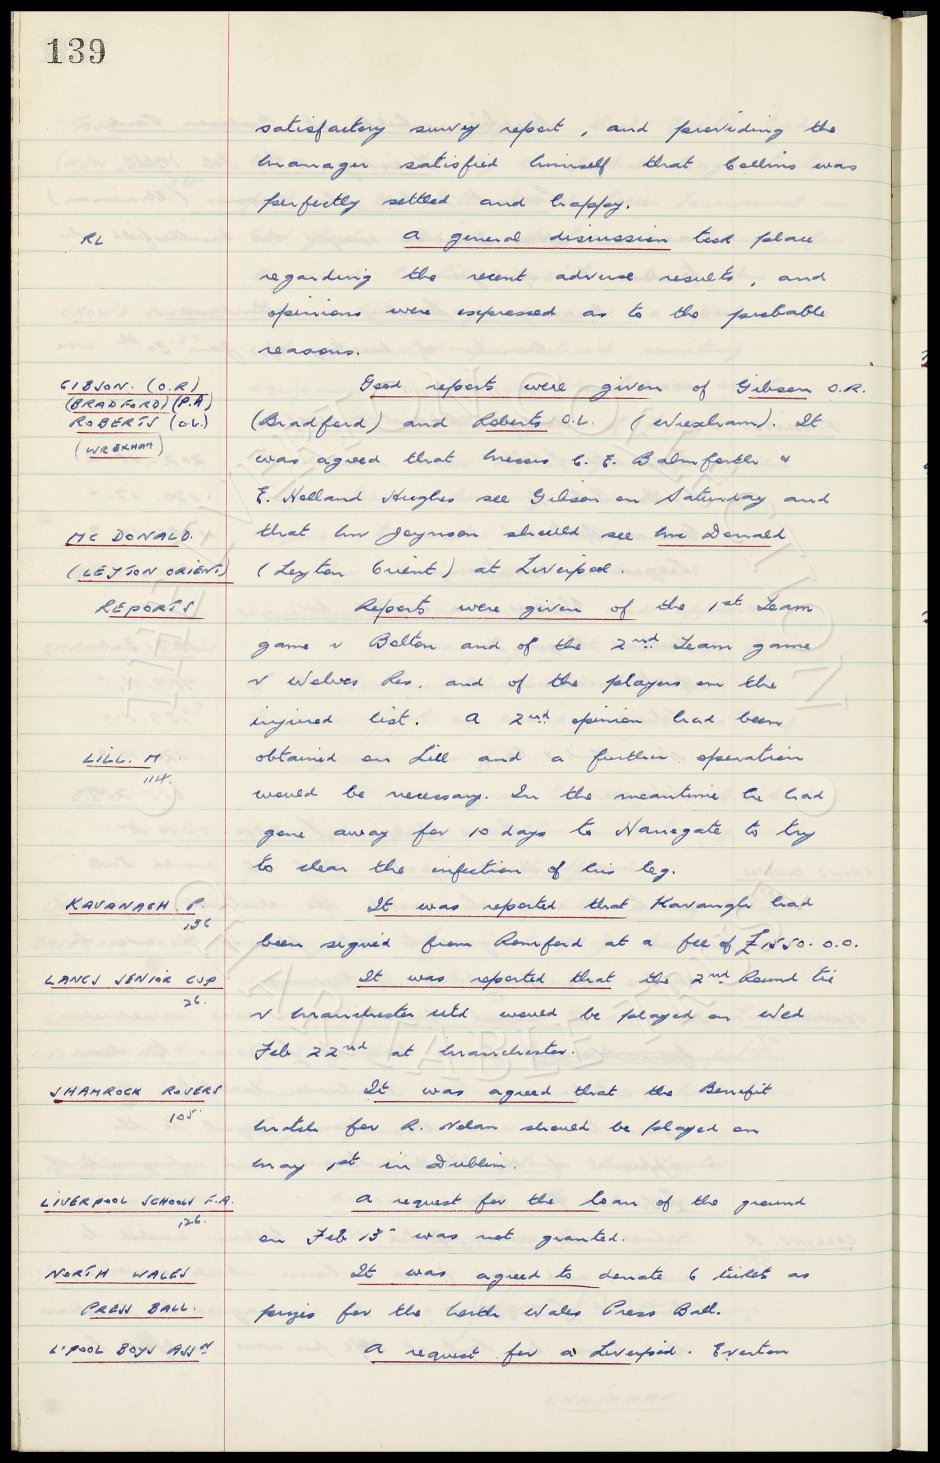 139
satisfactory survey report, and providing the
manager satisfied himself that Collins was
perfectly settled and happy.
RL
A general discussion took place
regarding the recent adverse results, and
opinions were expressed as to the probable
reasons.
GIBSON. (O.R)
Good reports were given of Gibson O.R.
(BRADFORD) (P.A)
ROBERTS (O.L.)
(Bradford) and Roberts O.L. (Wrexham). It
(WREXHAM)
was agreed that Messrs C. E. Balmforth &
E. Holland Hughes see Gibson on Saturday and
Mc DONALD.
that Mr Joynson should see Mc Donald
(LEYTON ORIENT)
(Leyton Orient) at Liverpool.
REPORTS
Reports were given of the 1st Team
game v Bolton and of the 2nd Team game
v Wolves Res. and of the players on the
injured list. A 2nd opinion had been
LILL. M
obtained on Lill and a further operation
114.
would be necessary. In the meantime he had
gone away for 10 days to Harrogate to try
to clear the infection of his leg.
KAVANAGH. P.
It was reported that Kavanagh had
136
been signed from Romford at a fee of £1550.0.0.
LANCS SENIOR CUP
It was reported that the 2nd Round tie
26.
v Manchester Utd would be played on Wed
Feb 22nd at Manchester.
SHAMROCK ROVERS
It was agreed that the Benefit
105.
Match for R. Nolan should be played on
May 1st in Dublin.
LIVERPOOL SCHOOLS F.A.
A request for the loan of the ground
126.
on Feb 13 was not granted.
NORTH WALES
It was agreed to donate 6 tickets as
PRESS BALL.
prizes for the North Wales Press Ball.
L'POOL BOYS ASSN
A request for a Liverpool. Everton
EVERTON COLLECTION
CHARITABLE TRUST